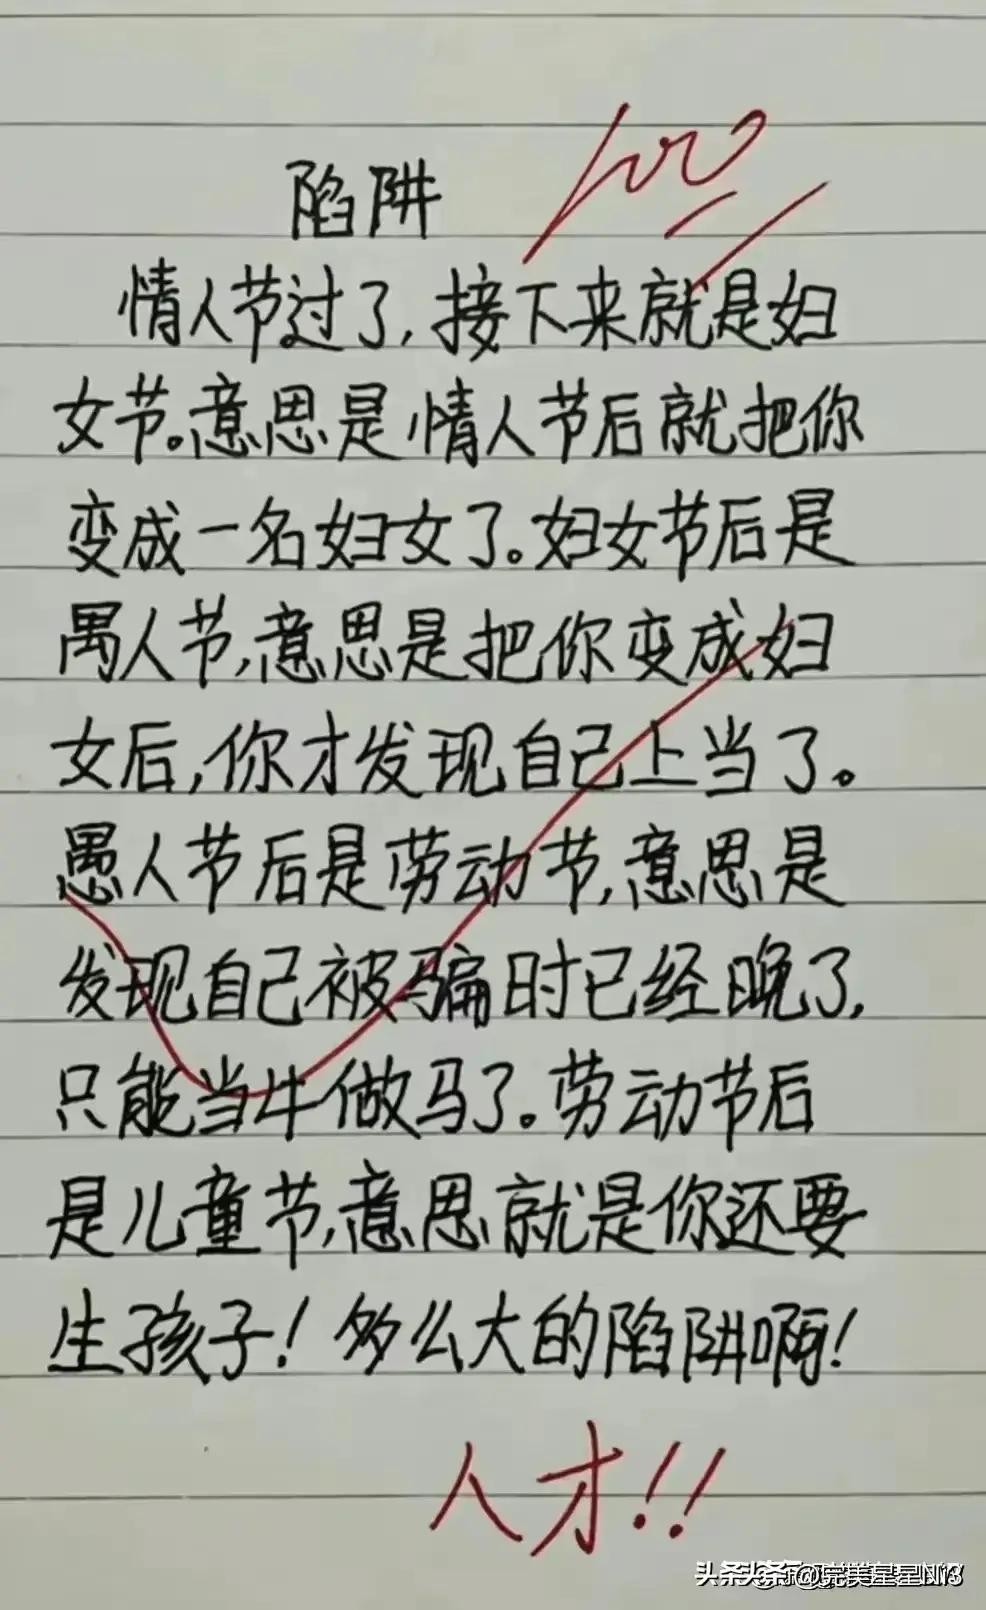 陷阱
100
情人节过了,接下来就是妇
女节。意思是情人节后就把你
变成一名妇女了。妇女节后是
愚人节,意思是把你变成妇
女后,你才发现自己上当了。
愚人节后是劳动节,意思是
发现自己被骗时已经晚了,
只能当牛做马了。劳动节后
是儿童节,意思就是你还要
生孩子!多么大的陷阱啊!
人才!!
头条 @完美星星N3